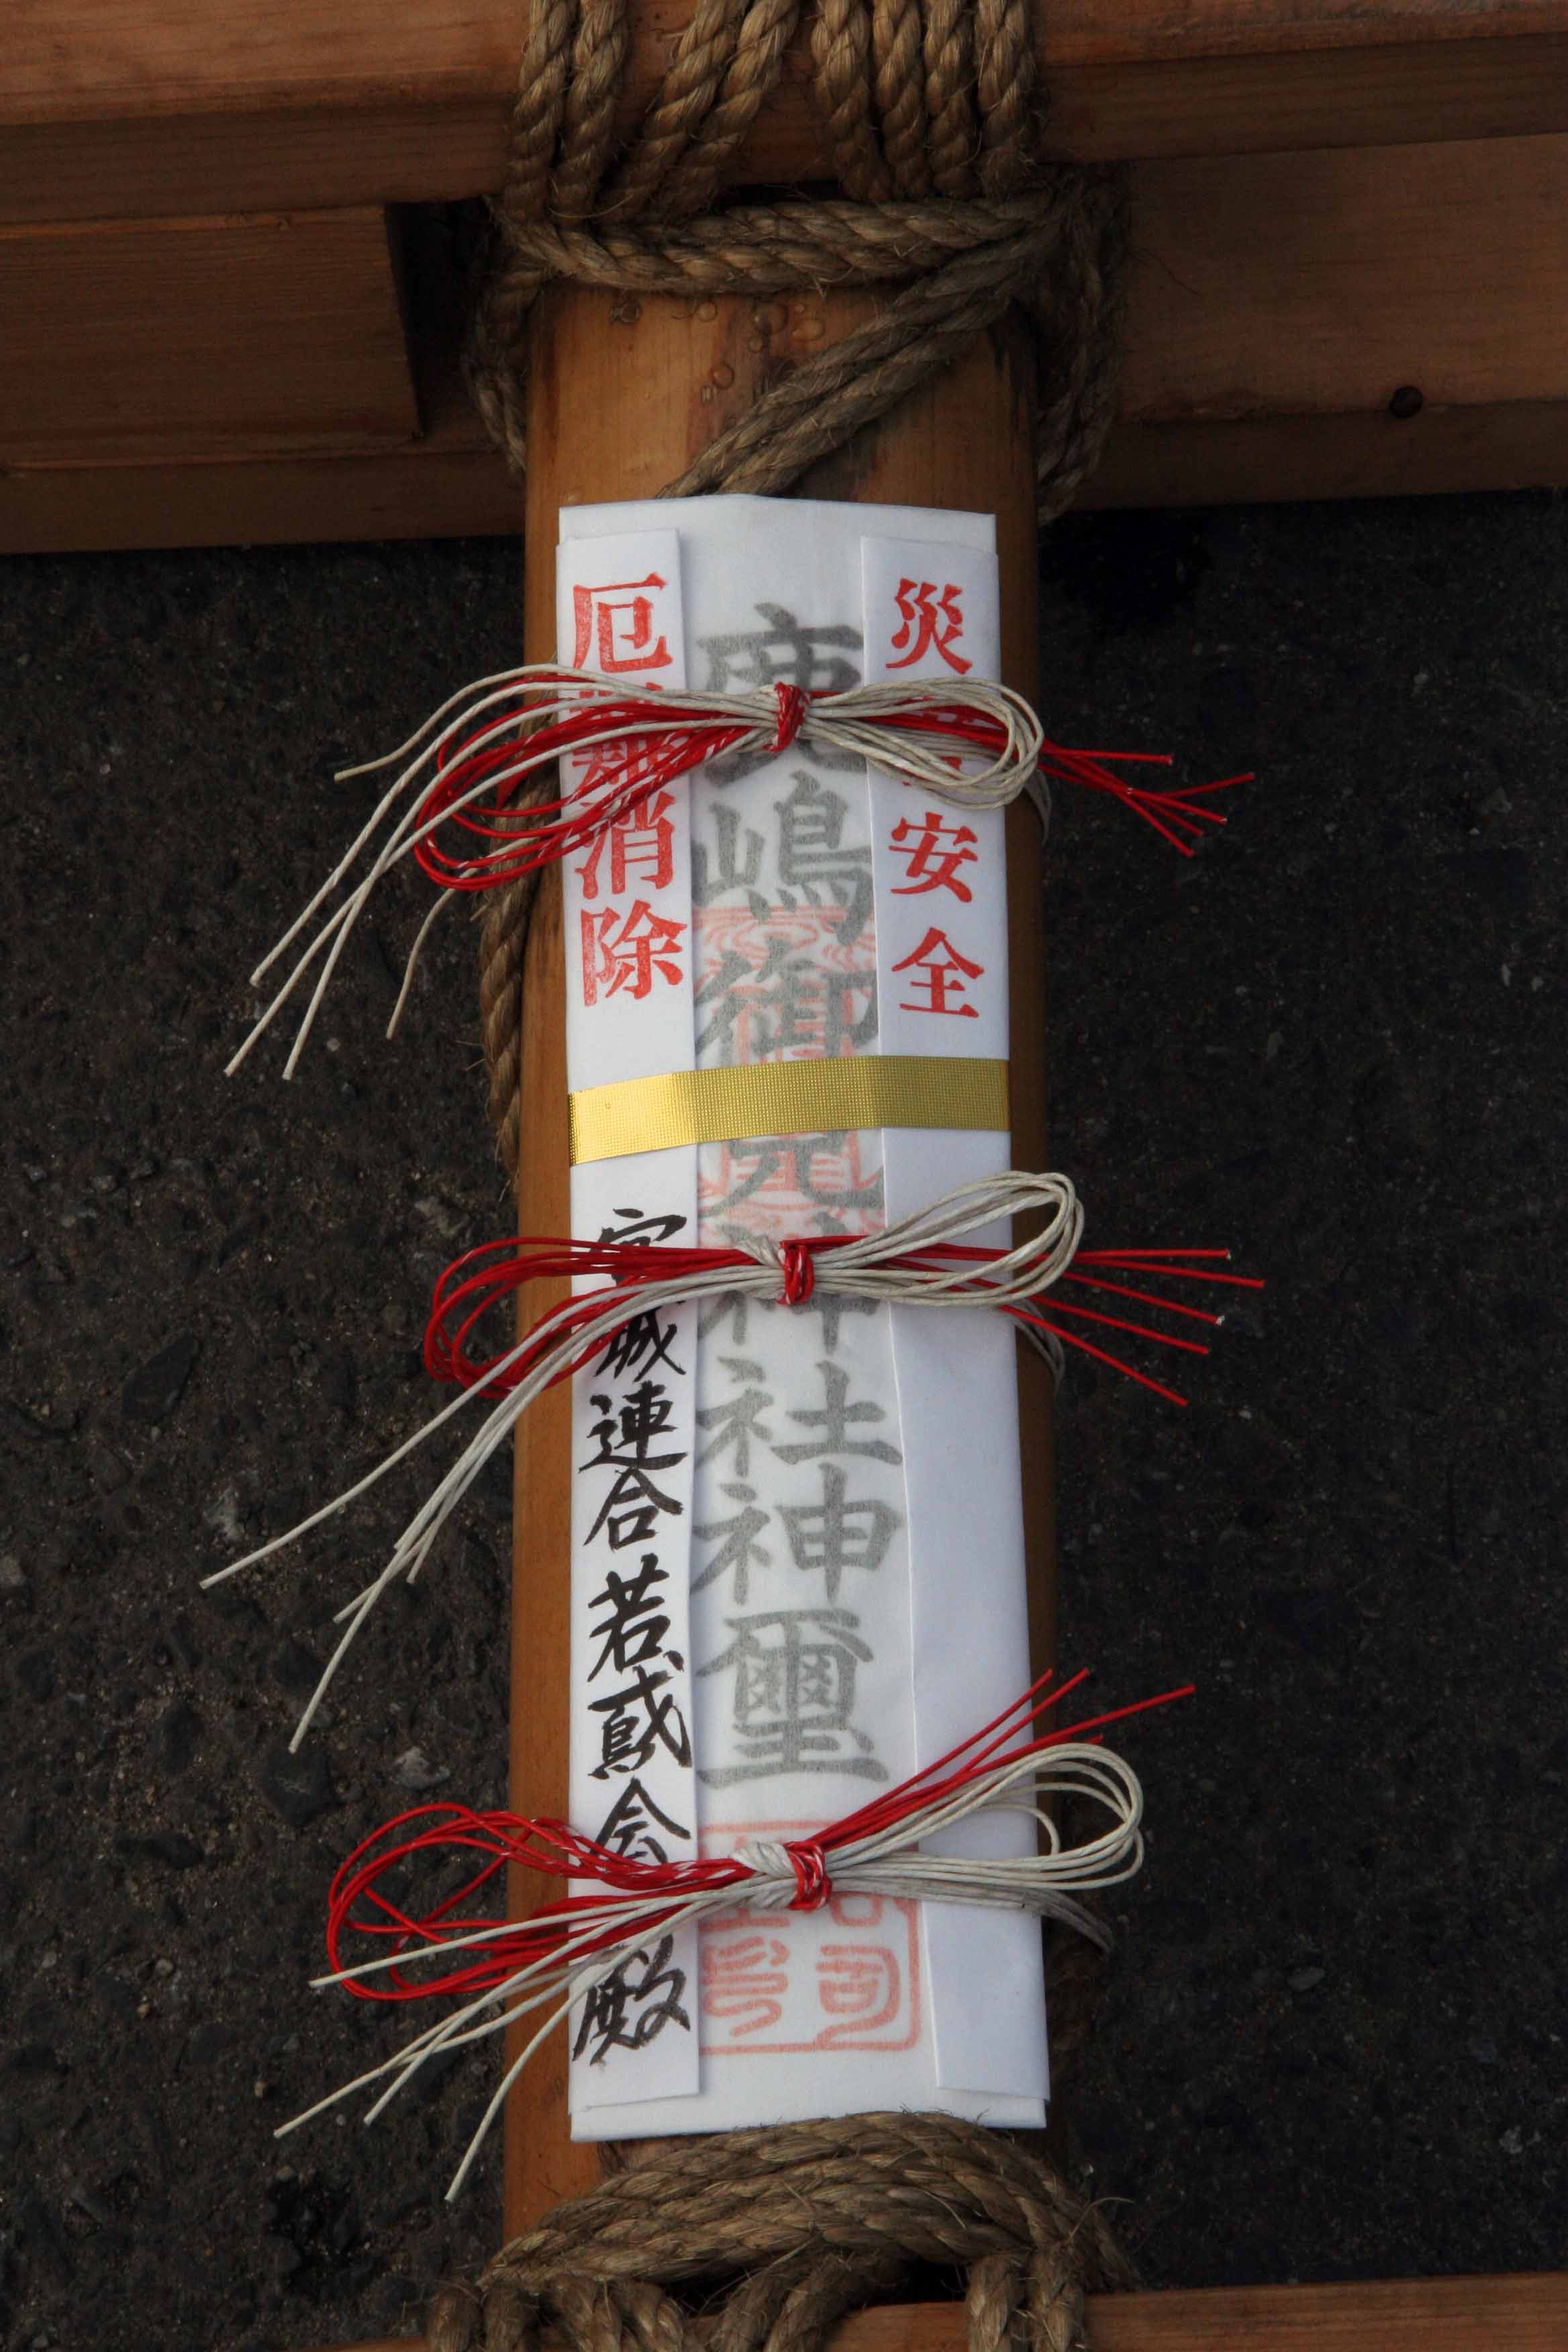 災 安全
鹿嶋御児神社神璽
厄難消除
宮城連合若鳶会殿